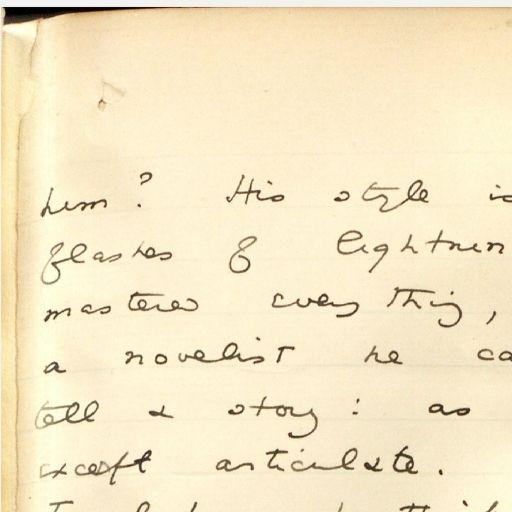 him? His style is
flashes of lightnin
mastered everything,
a novelist he ca
tell a story: as
except articulate.